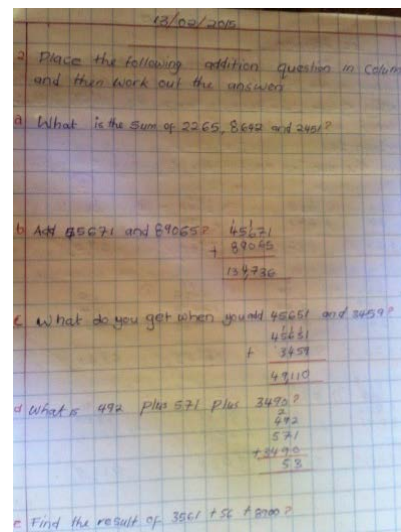 13/02/2015
2 Place the following addition question in Colum
and then work out the answer
a What is the Sum of 2265, 8642 and 2451?
b Add 45671 and 89065? 45671
+ 89065
134,736
c What do you get when you add 45651 and 3459?
45651
+ 3459
49,110
d What is 492 plus 571 plus 3490?
2
492
571
+3490
53
e Find the result of 3561 + 56 + 2700?